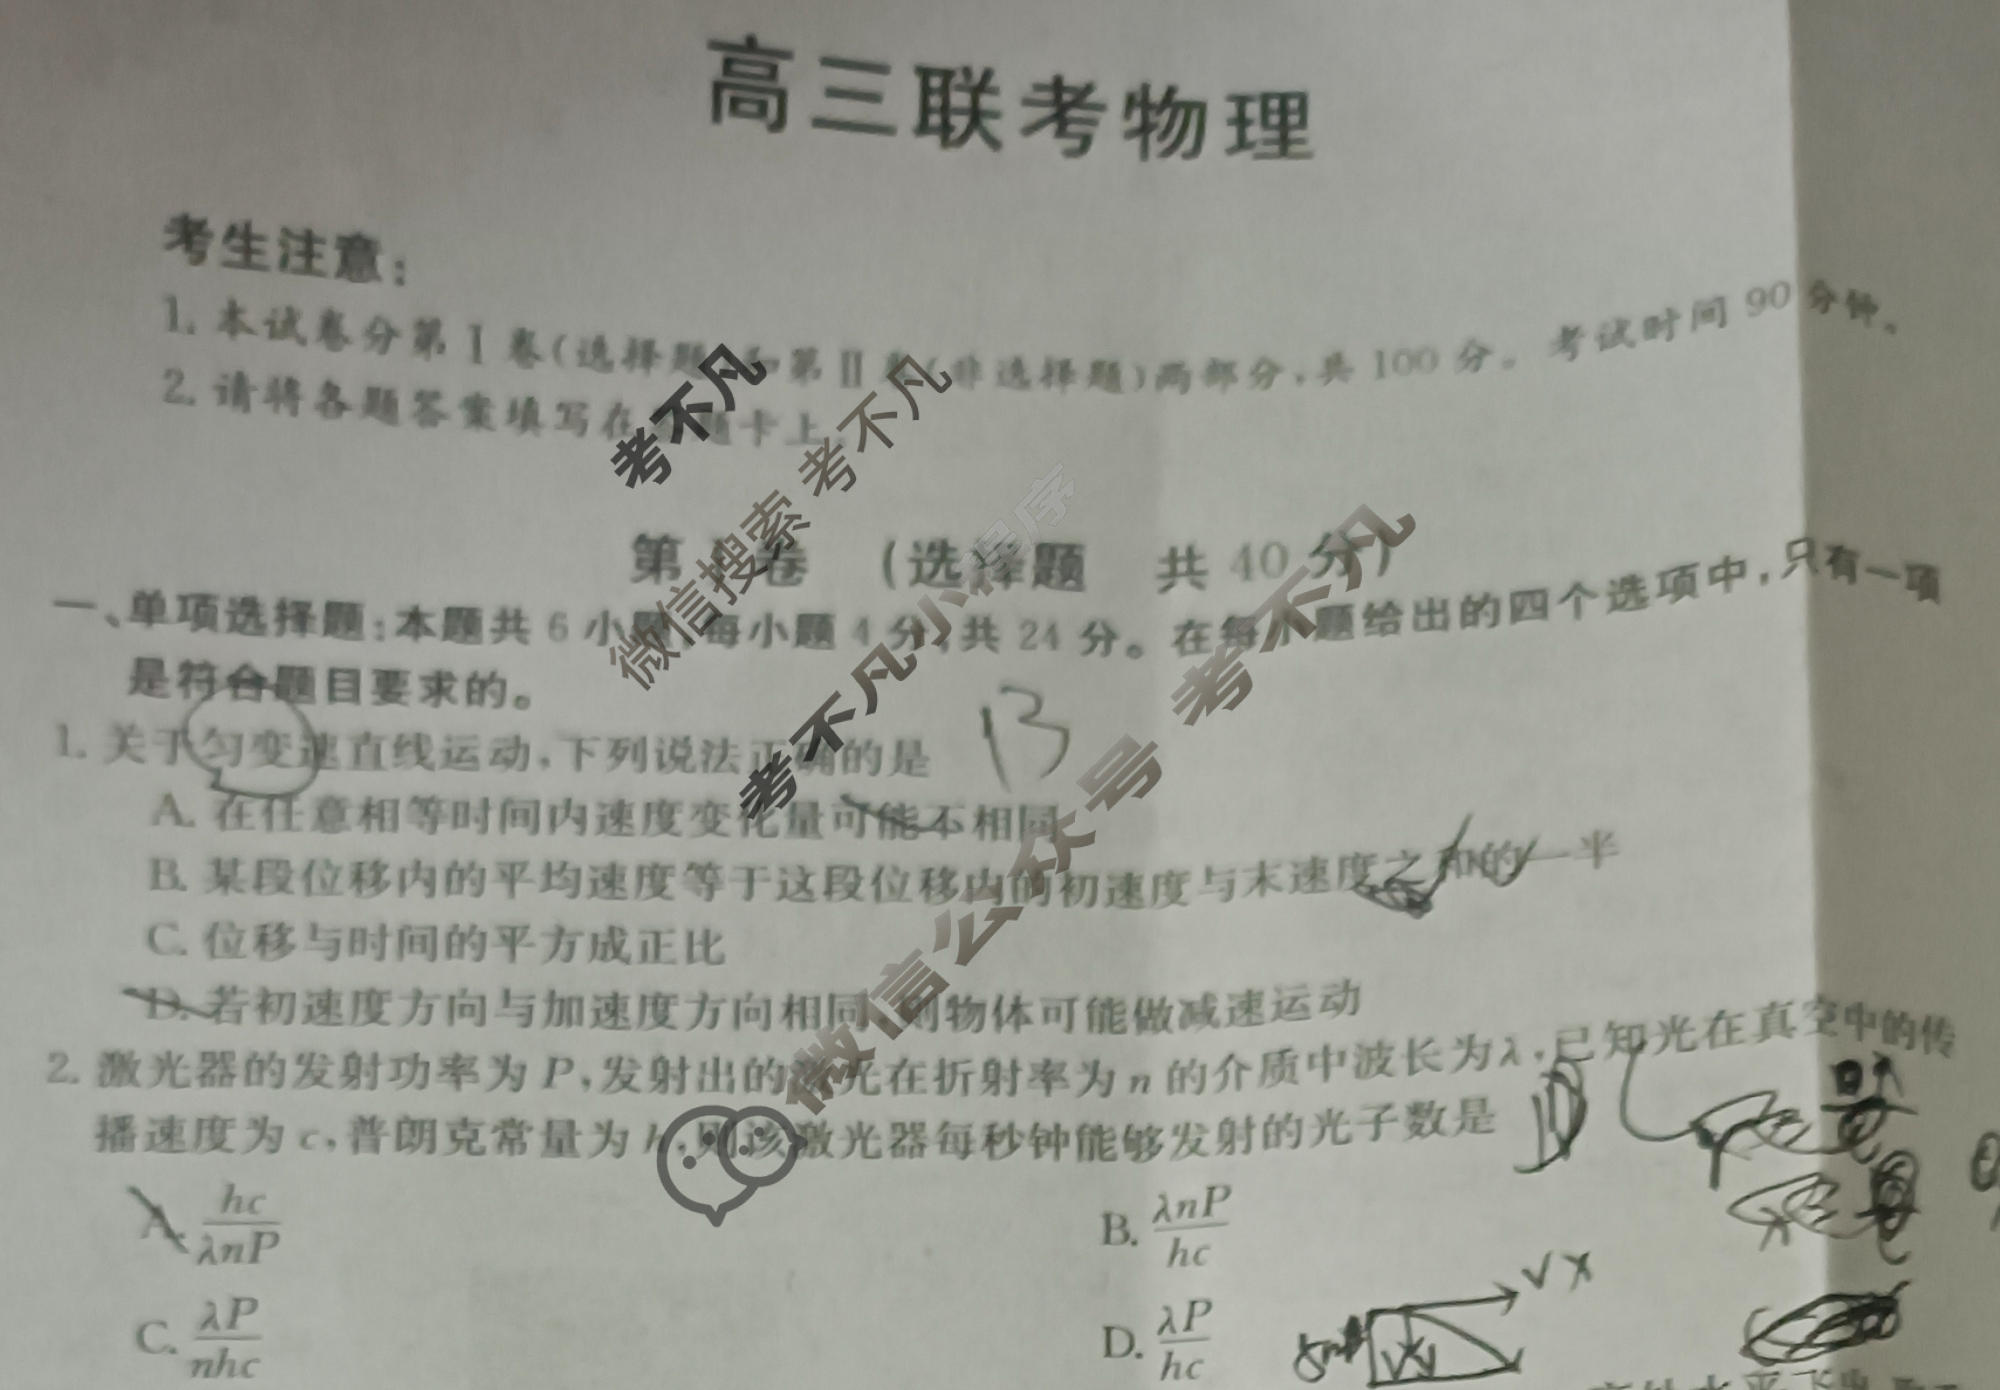 高三联考物理
考生注意：
1. 本试卷分第Ⅰ卷(选择题)和第Ⅱ卷(非选择题)两部分，共 100 分。考试时间 90 分钟。
2. 请将各题答案填写在答题卡上。
第Ⅰ卷 (选择题 共 40 分)
一、单项选择题：本题共 6 小题，每小题 4 分，共 24 分。在每小题给出的四个选项中，只有一项
是符合题目要求的。
1. 关于匀变速直线运动，下列说法正确的是 B
A. 在任意相等时间内速度变化量可能不相同
B. 某段位移内的平均速度等于这段位移内的初速度与末速度之和的一半
C. 位移与时间的平方成正比
D. 若初速度方向与加速度方向相同，则物体可能做减速运动
2. 激光器的发射功率为 P，发射出的激光在折射率为 n 的介质中波长为λ，已知光在真空中的传
播速度为 c，普朗克常量为 h，则该激光器每秒钟能够发射的光子数是
A. hc/λnP
B. λnP/hc
C. λP/nhc
D. λP/hc
考不凡
微信搜索 考不凡
考不凡小程序
微信公众号 考不凡